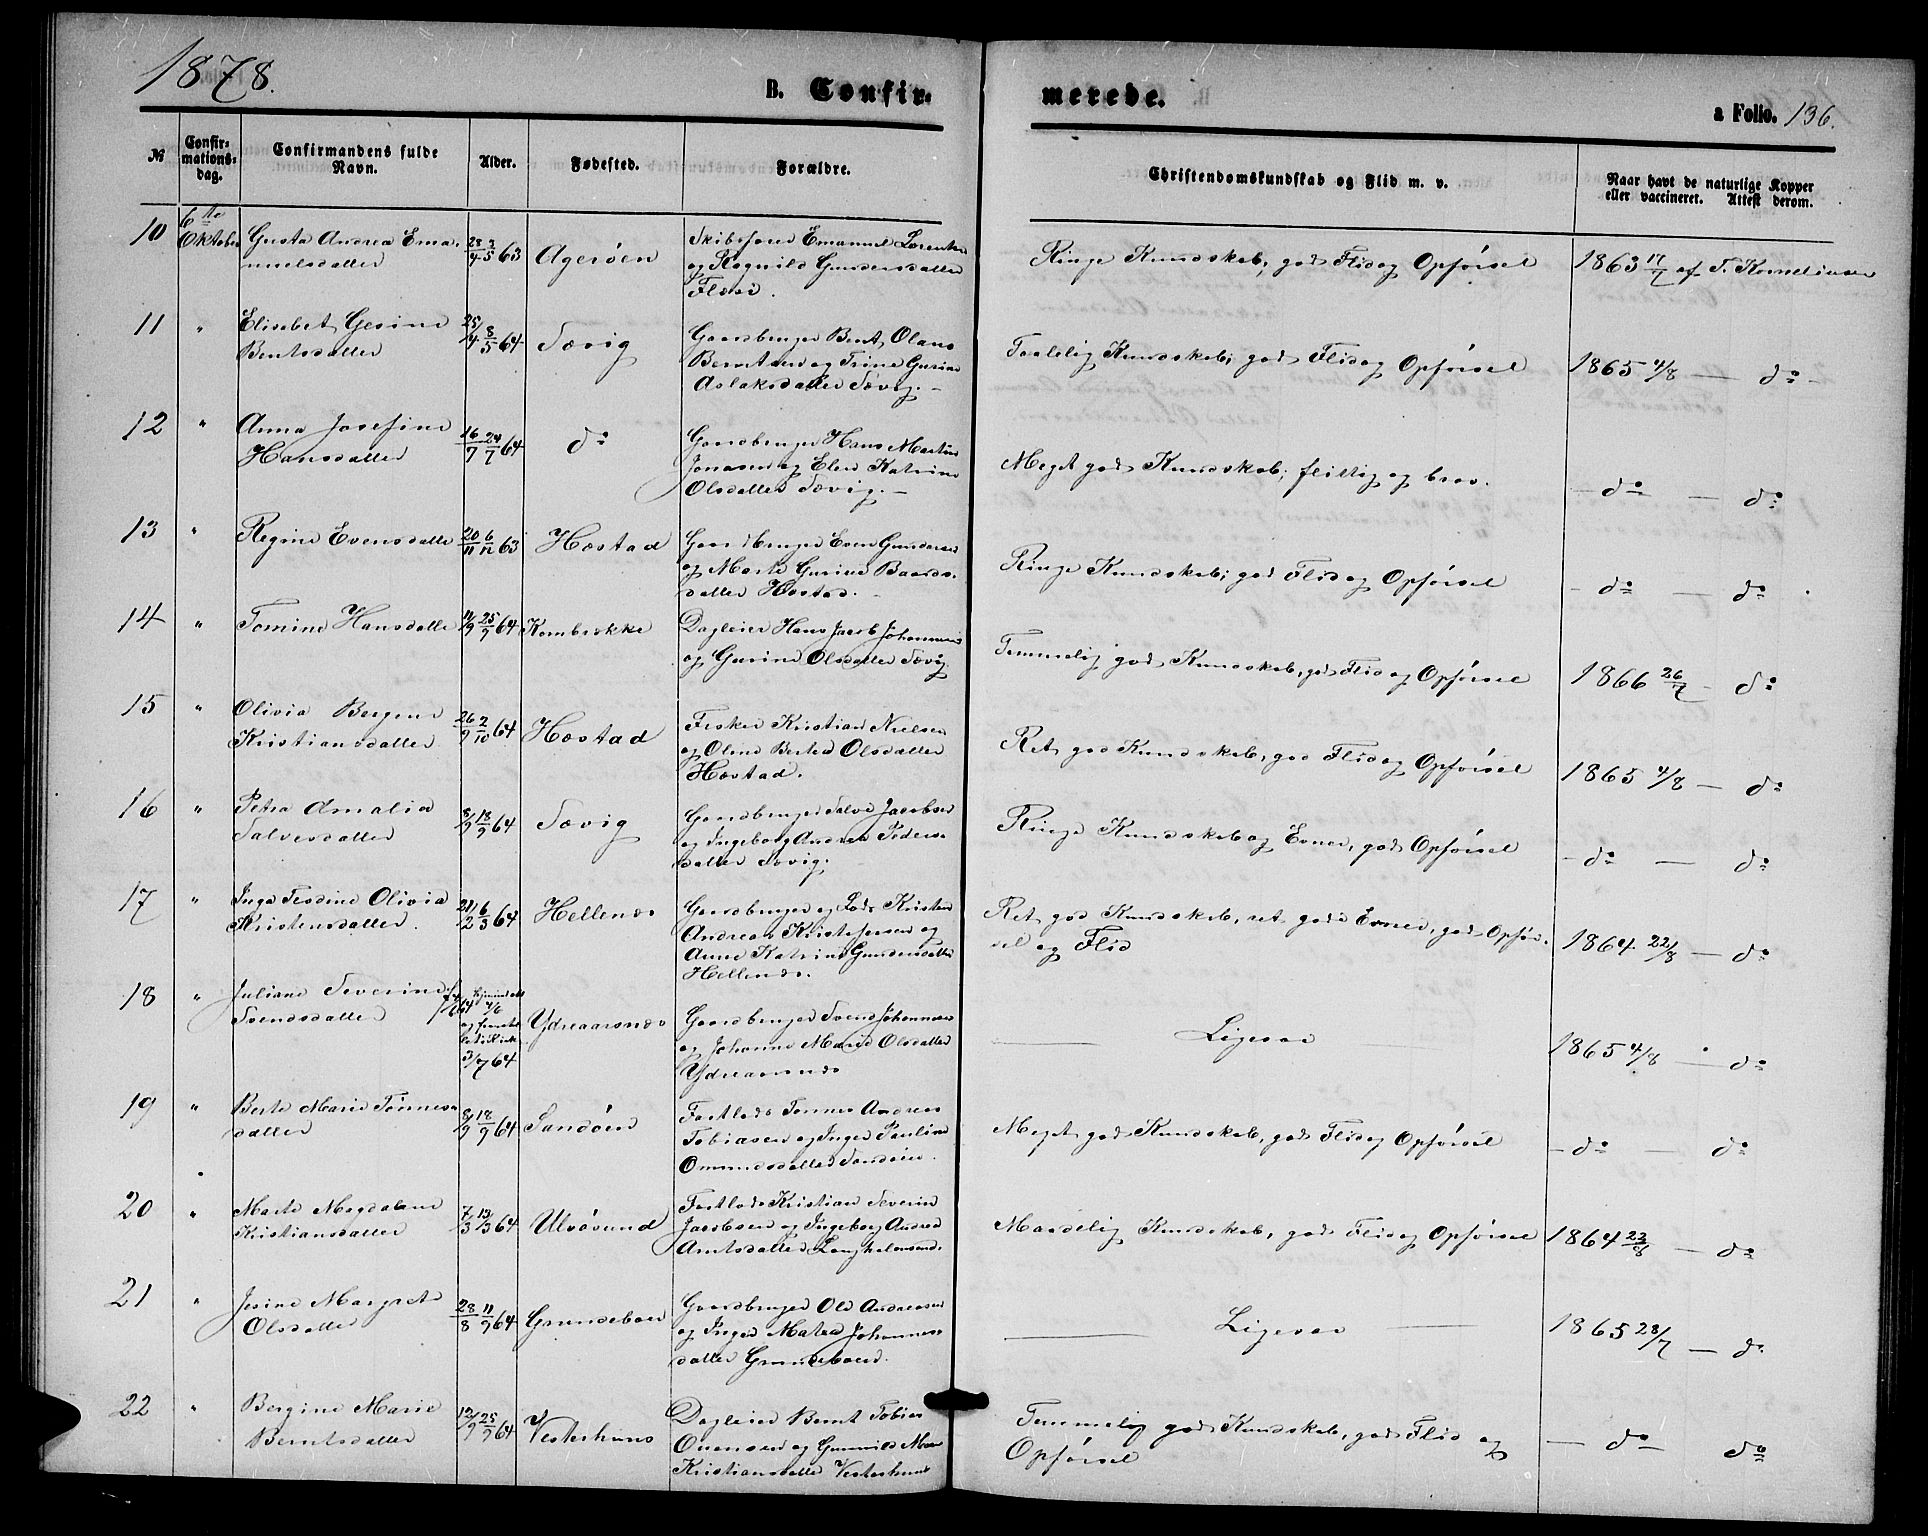 1878.
B. Confir-
merede.
a Folio. 136.
№
Confir-
mations-
dag.
Confirmandens fulde
Navn.
Alder.
Fødested.
Forældre.
Christendomskundskab og Flid m. v.
Naar havt de naturlige Kopper
eller vaccineret. Attest derom.
10
6te
Oktober
Gusta Andrea Ema-
nuelsdatter
28/4 3/5 63
Agerøen
Skibsfører Emanuel
og Ragnild Gundersdatter
Ringe Kundskab, god Flid og Opførsel
1863 17/7 af T. Korneliussen
11
"
Elisabet Gesine
Bentsdatter
25/4 8/5 64
Sævig
Gaardbruger Bent Olaus
Berntsen og Trine Gurine
Aslaksdatter Sævig. -
Taalelig Kundskab; god Flid og Opførsel
1865 4/8 — do -
12
"
Anna Josefine
Hansdatter
16/7 24/7 64
do
Gaardbruger Hans Martin
Jonasen og Elen Katrine
Olsdatter Sævig. -
Meget god Kundskab; flittig og brav.
- do — do
13
"
Regine Evensdatter
20/11 6/12 63
Hæstad
Gaardbruger Even Gundersen
og Marte Gurine Baards-
datter Hæstad. -
Ringe Kundskab; god Flid og Opførsel
- do — do
14
"
Tomine Hansdatter
11/9 25/9 64
Kornbrekke
Dagleier Hans Jacob Johannesen
og Gurine Olsdatter Sævig
Temmelig god Kundskab, god Flid og Opførsel
1866 26/7 - do
15
"
Olivia Bergine
Kristiansdatter
26/9 2/10 64
Hæstad
Fisker Kristian Nielsen
og Oline Bertea Olsdatter
Hæstad.
Ret god Kundskab, god Flid og Opførsel
1865 4/8 — do
16
"
Petra Amalia
Salvesdatter
8/9 18/9 64
Sævig
Gaardbruger Salve Jacobsen
og Ingeborg Andrea Peders-
datter Sævig.
Ringe Kundskab og Evner, god Opførsel
- do — do
17
"
Inga Olivia
Kristensdatter.
21/2 6/3 64
Hellende
Gaardbruger og Lods Kristen
Andreas Kristofersen og
Anne Katrine Gundersdatter
Hellende.
Ret god Kundskab, ret gode Evner, god Opfør-
sel og Flid
1864 22/8 — do
18
"
Juliane Severine
Svendsdatter
3/7 64
Ydreaarsnes
Gaardbruger Svend Johannesen
og Johanne Marie Olsdatter
Ydreaarsnes
— Ligesaa
1865 4/8 — do
19
"
Berte Marie Tønnes-
datter
8/9 18/9 64
Sandøen
Fastlods Tønnes Andreas
Tobiasen og Inger Pauline
Omundsdatter Sandøen.
Meget god Kundskab, god Flid og Opførsel
- do — do
20
"
Marte Magdalene
Kristiansdatter
7/3 13/3 64
Ulvøsund
Fastlods Kristian Severin
Jacobsen og Ingeborg Andrea
Arntsdatter
Maadelig Kundskab, god Flid og Opførsel
1864 23/8 — do
21
"
Jesine Margrete
Olsdatter
28/8 11/9 64
Grundeboen
Gaardbruger Ole Andreasen
og Inger Matea Johannes-
datter Grundeboen.
— Ligesaa —
1865 28/7 — do
22
"
Bergine Marie
Berntsdatter
12/9 25/9 64
Vesterhuus
Dagleier Bernt Tobias
og
Kristiansdatter Vesterhuus
Temmelig god Kundskab, god Flid og
Opførsel
— do — do